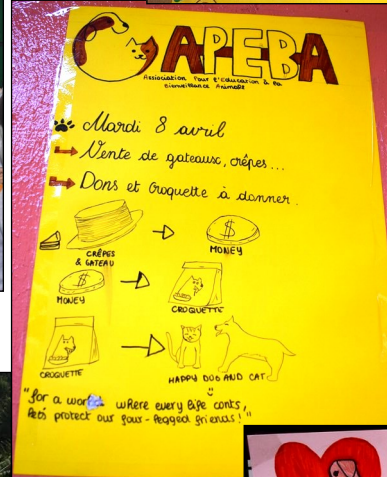 APEBA
Association Pour l'Education à la
Bienveillance Animale
Mardi 8 avril
Vente de gateaux, crêpes...
Dons et Croquette à donner.
CRÊPES
& GATEAU
$
MONEY
$
MONEY
CROQUETTE
CROQUETTE
HAPPY DOG AND CAT
"for a world where every life conts,
let's protect our four-legged friends!"